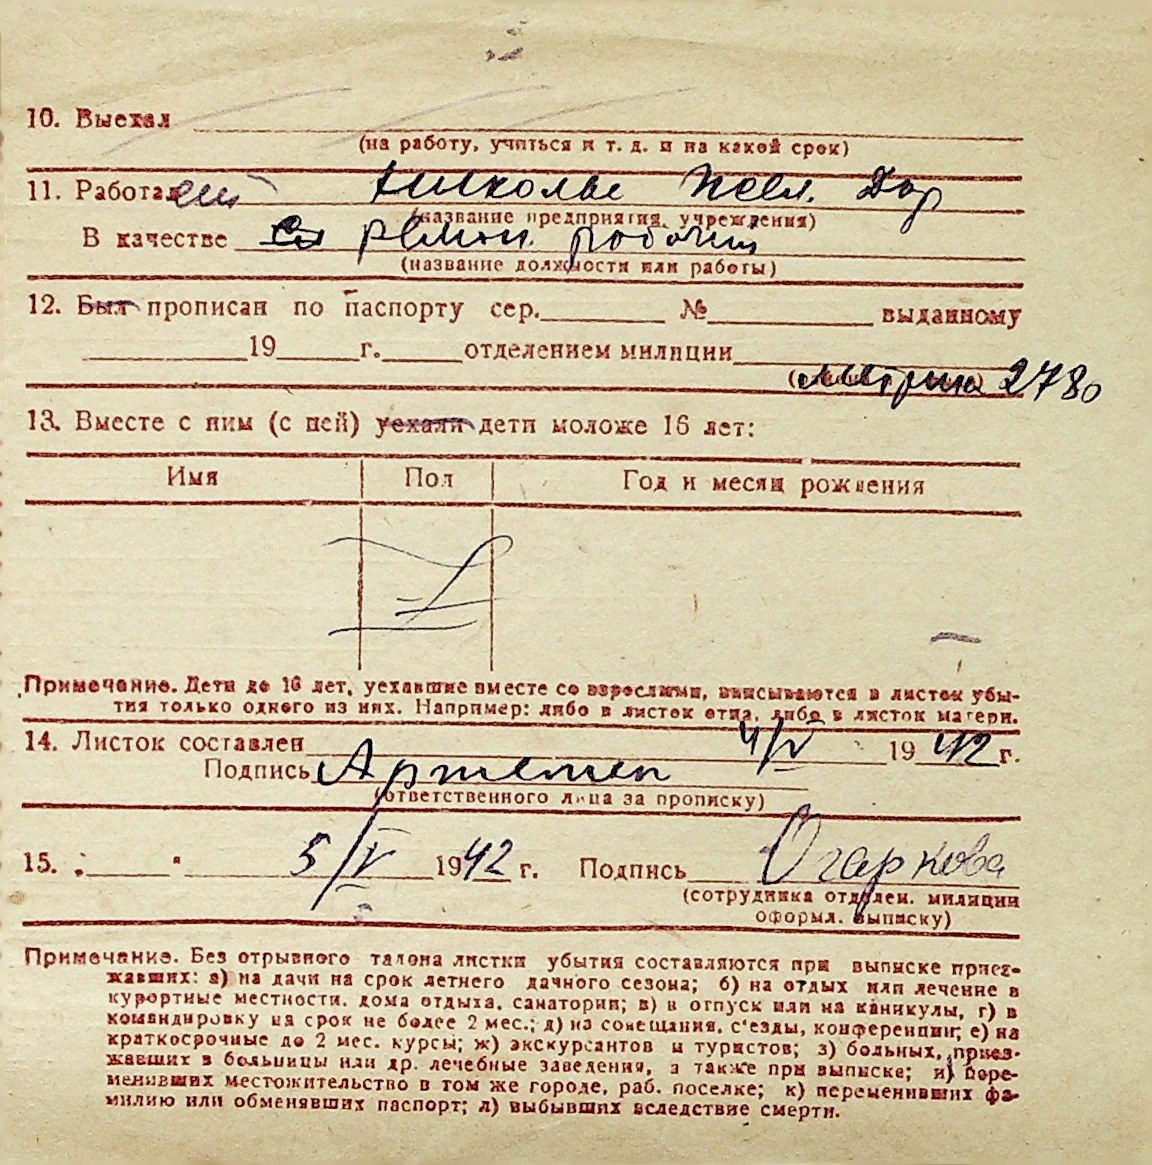 10. Выехал
(на работу, учиться и т. д. и на какой срок)
11. Работа Жел. Дор
(название предприятия, учреждения)
В качестве ремон. рабочий
(название должности или работы)
12. Был прописан по паспорту сер. № выданному
19 г. отделением милиции
метрик 2780
13. Вместе с ним (с ней) уехали дети моложе 16 лет:
Имя Пол Год и месяц рождения
Примечание. Дети до 16 лет, уехавшие вместе со взрослыми, вписываются в листок убы-
тия только одного из них. Например: либо в листок отца, либо в листок матери.
14. Листок составлен 4/V 1942 г.
Подпись
(ответственного лица за прописку)
15. 5/V 1942 г. Подпись Огаркова
(сотрудника отделен. милиции
оформл. выписку)
Примечание. Без отрывного талона листки убытия составляются при выписке приез-
жавших: а) на дачи на срок летнего дачного сезона; б) на отдых или лечение в
курортные местности, дома отдыха, санатории; в) в отпуск или на каникулы, г) в
командировку на срок не более 2 мес.; д) на совещания, с'езды, конференции; е) на
краткосрочные до 2 мес. курсы; ж) экскурсантов и туристов; з) больных, приез-
жавших в больницы или др. лечебные заведения, а также при выписке; и) пере-
менивших местожительство в том же городе, раб. поселке; к) переменивших фа-
милию или обменявших паспорт; л) выбывших вследствие смерти.